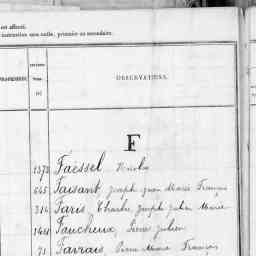 en affiné.
instruction non nulle, primaire ou secondaire.
PROFESSION
OBSERVATIONS.
F
1373 Faessel, Nicolas
645 Faisant Joseph Jean Marie François
314 Faris Charles Joseph Julien Marie
1421 Faucheux, Pierre Julien
71 Favrais, Pierre Marie François